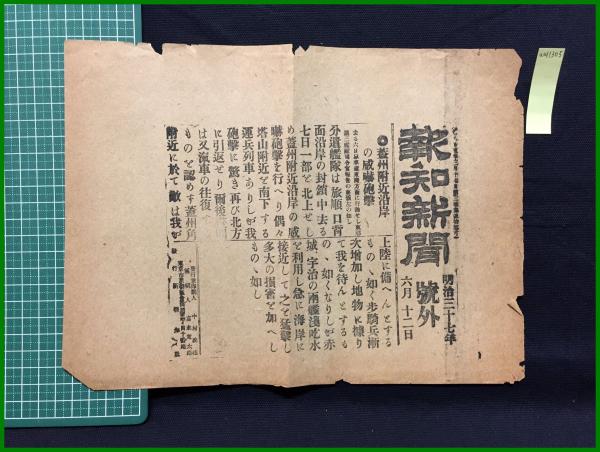 報知新聞
號外
明治三十七年
六月十二日
◎蓋州附近沿岸
の威嚇砲擊
外遣艦隊は旅順口背
面沿岸の封鎖中去る
七日一部を北上せし
め蓋州附近沿岸の威
嚇砲擊を行へり偶々
塔山附近を南下する
運兵列車ありしが我
砲擊に驚き再び北方
に引返せり爾後
は又滊車の往復
ものを認めず蓋州角
附近に於て敵は我が
上陸に備へんとする
ものゝ如く步騎兵漸
次增加し地物に據り
て我を待んとするも
のゝ如くなりしが赤
城、宇治の兩艦淺吃水
を利用し急に海岸に
接近して之を猛擊し
多大の損害を加へし
ものゝ如し